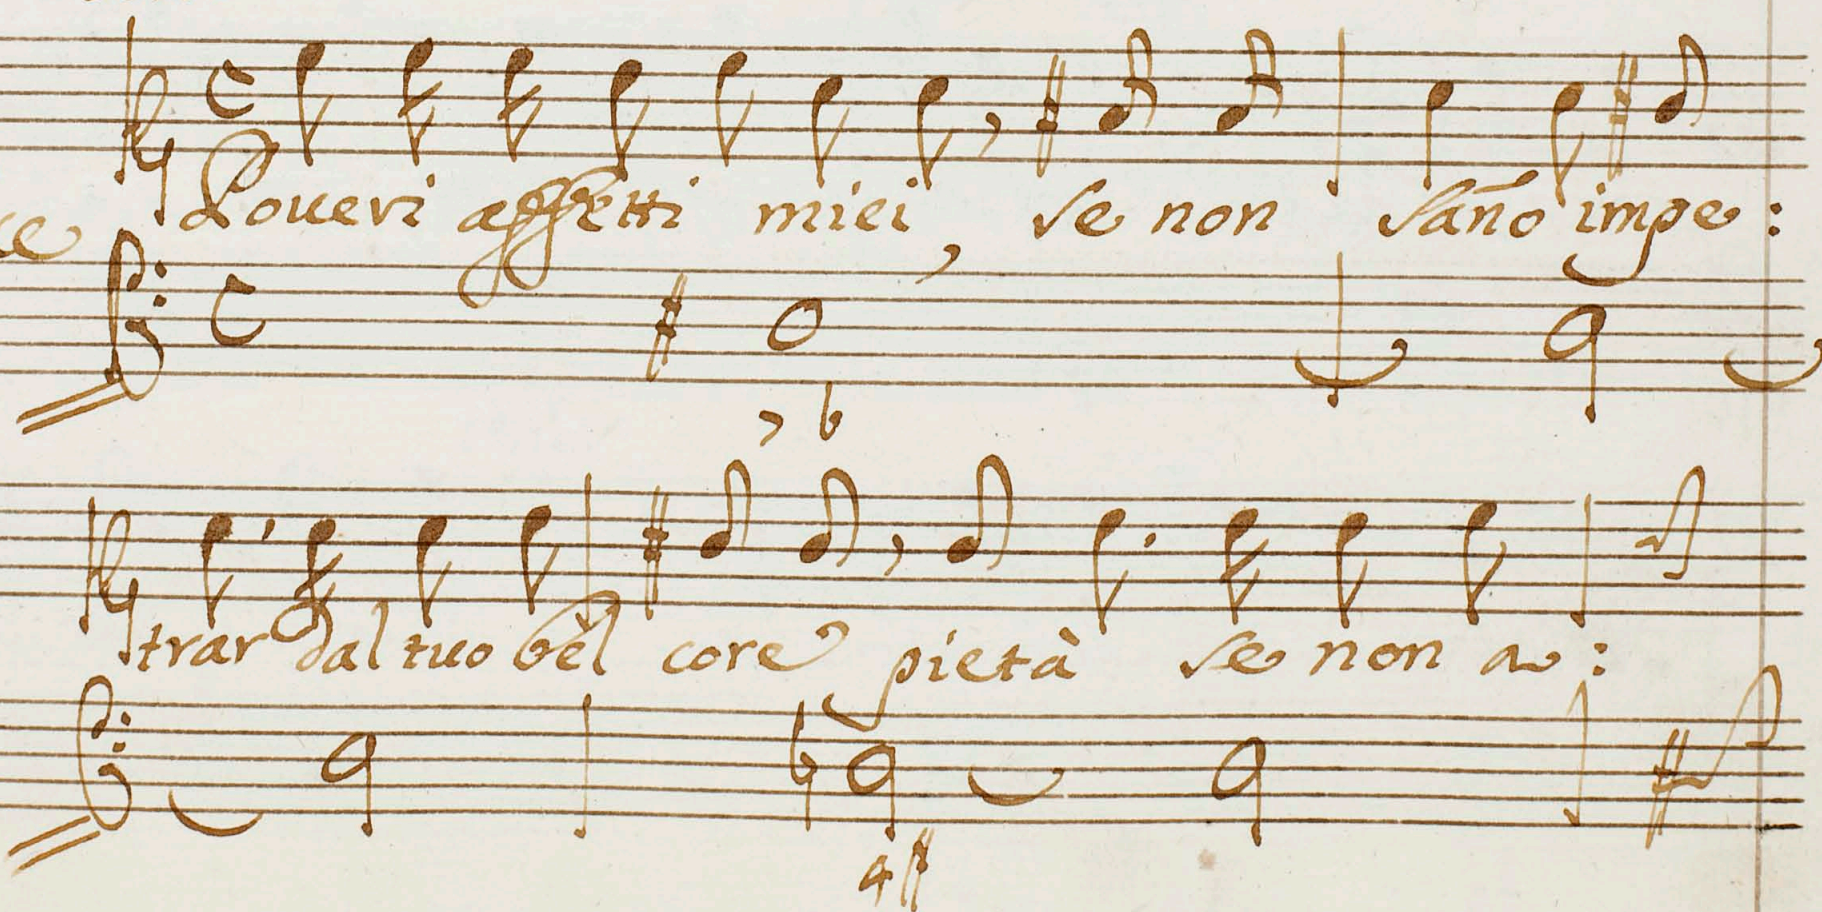 Poueri affetti miei se non sañno impe:
7 b
trar dal tuo bel core pietà se non a:
4 #